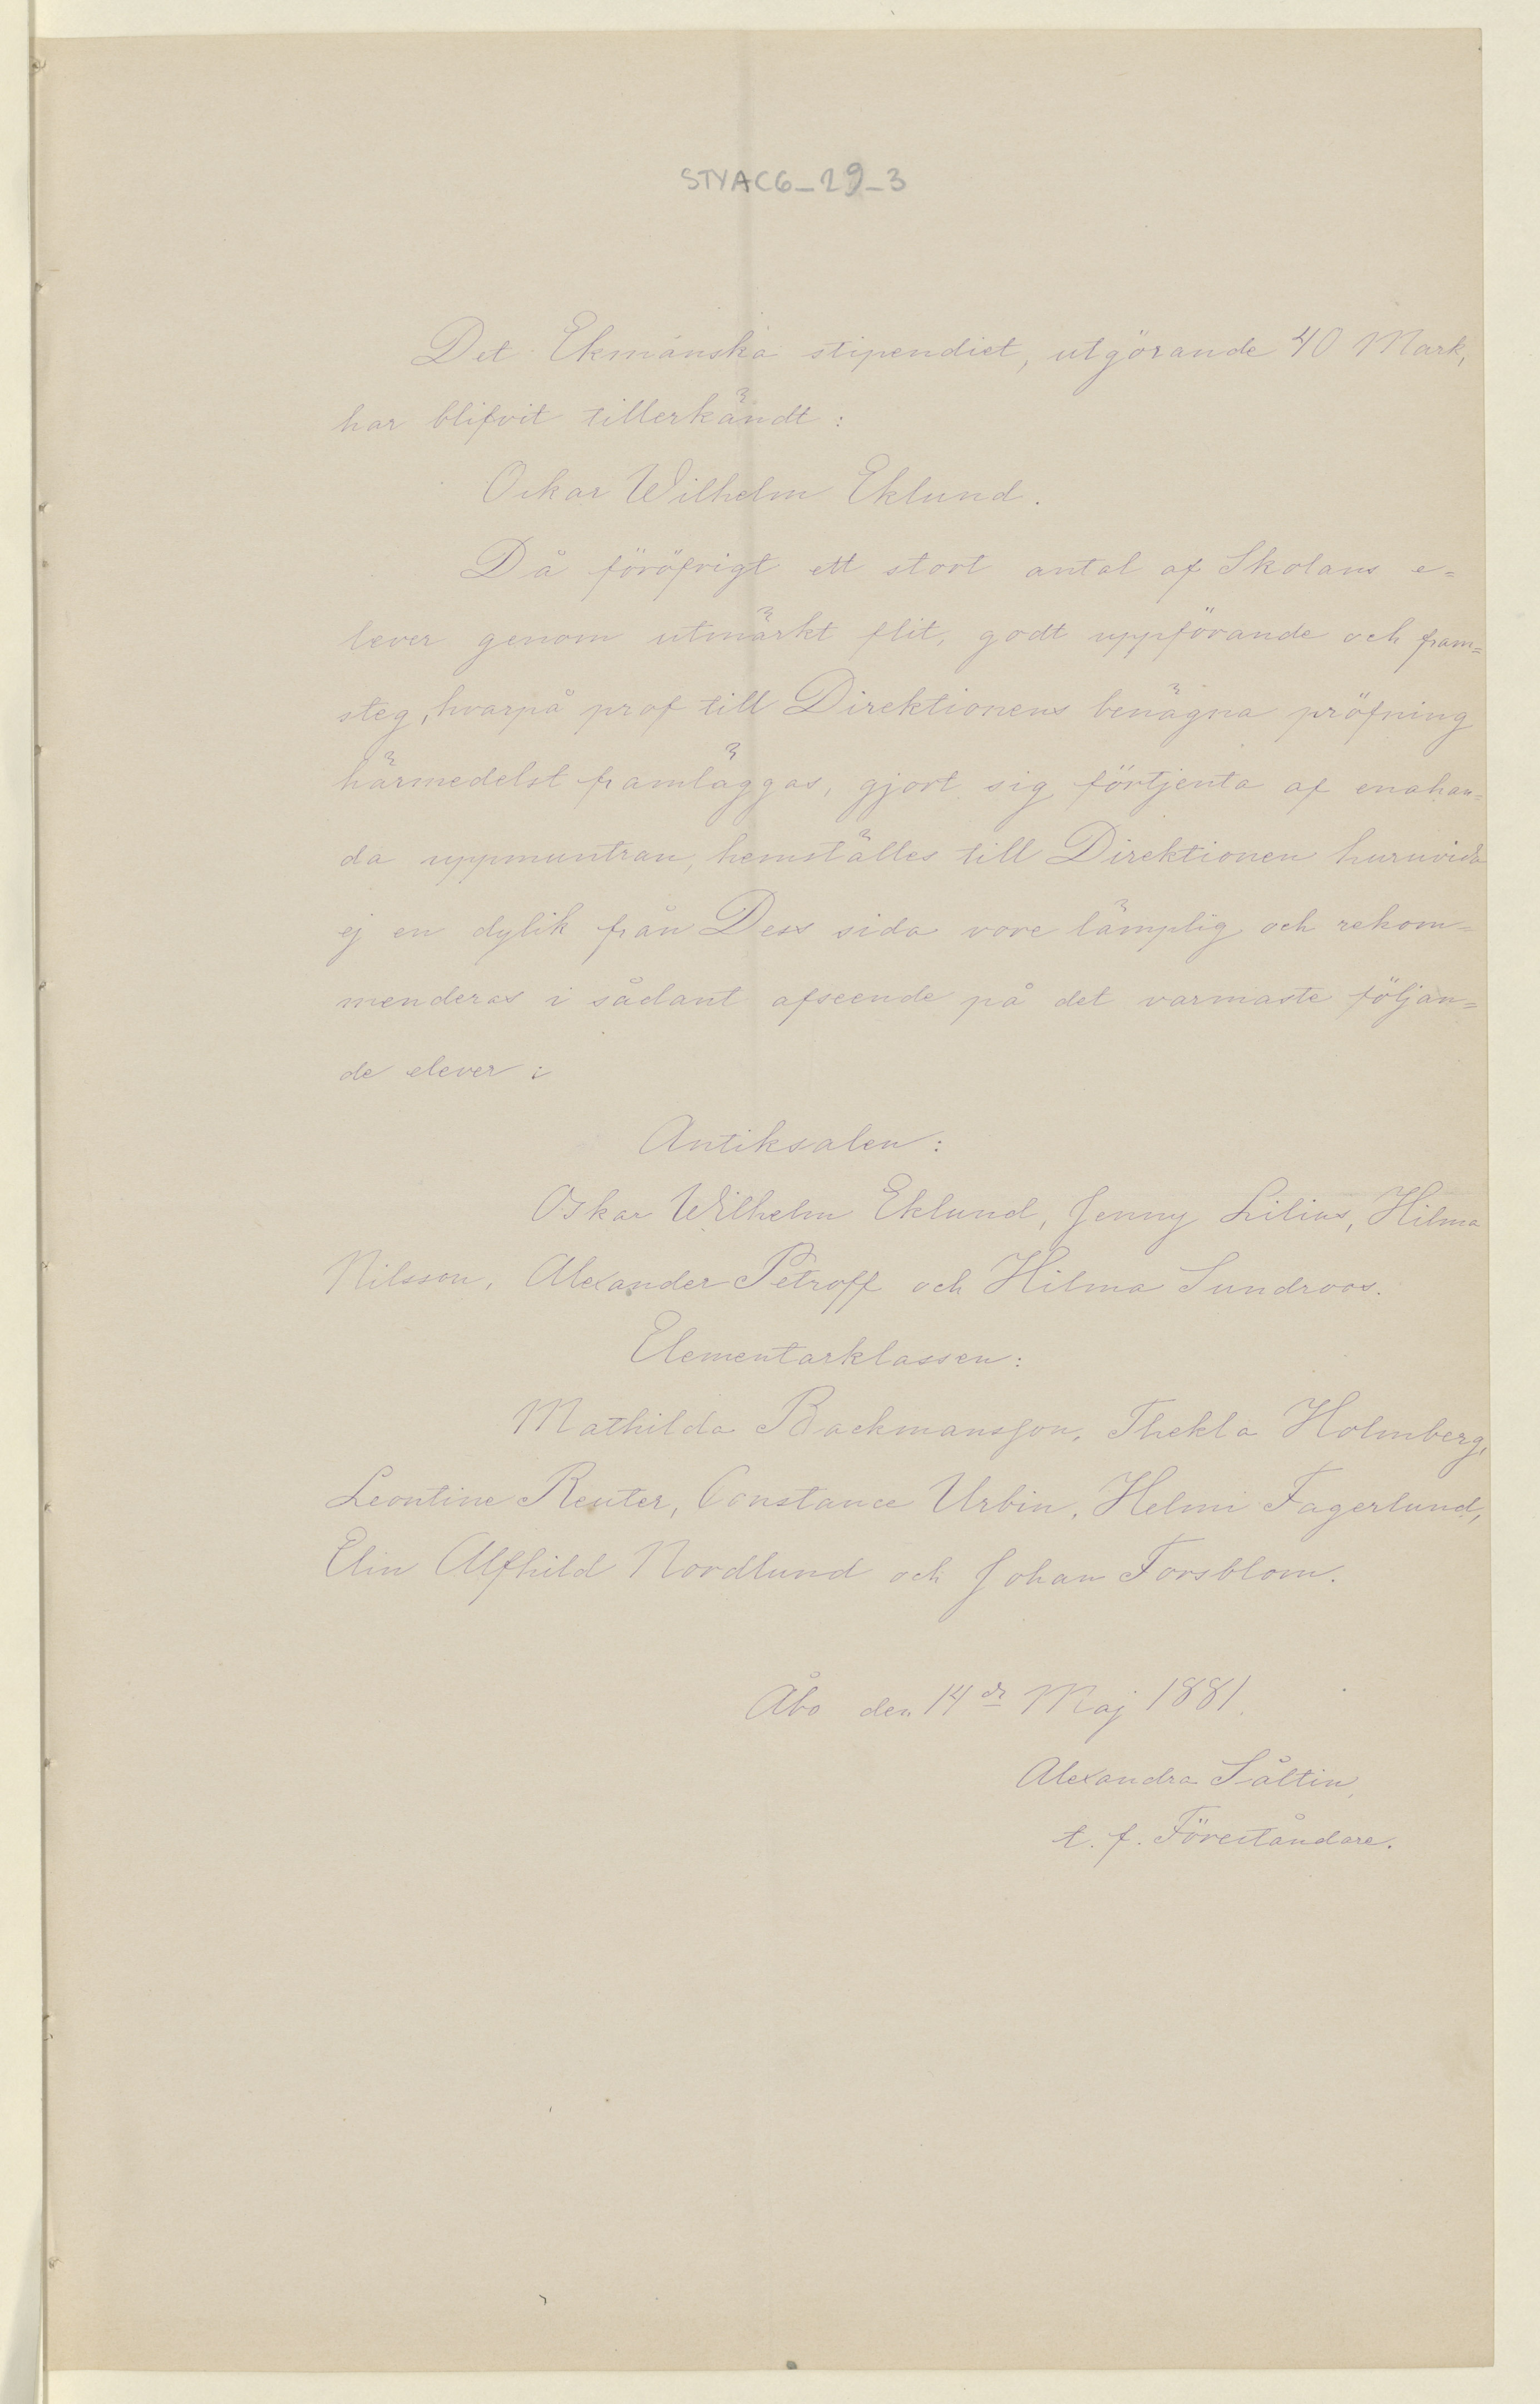 STYAC6_29_3
Det Ekmanska stipendiet, utgörande 40 Mark,
har blifvit tillerkändt:
Oskar Wilhelm Eklund.
Då föröfrigt ett stort antal af Skolans e=
lever genom utmärkt flit, godt uppförande och fram=
steg, hvarpå prof till Direktionens benägna pröfning
härmedelst framläggas, gjort sig förtjenta af enahan=
da uppmuntran, hemställes till Direktionen huruvida
ej en dylik från Dess sida vore lämplig och rekom=
menderas i sådant afseende på det varmaste följan=
de elever:
Antiksalen:
Oskar Wilhelm Eklund, Jenny Lilius, Hilma
Nilsson, Alexander Petroff och Hilma Sundroos.
Elementarklassen:
Mathilda Backmansson, Thekla Holmberg,
Leontine Reuter, Constance Urbin, Helmi Fagerlund,
Elin Alfhild Nordlund och Johan Forsblom.
Åbo den 14de Maj 1881.
Alexandra Såltin,
t. f. Föreståndare.